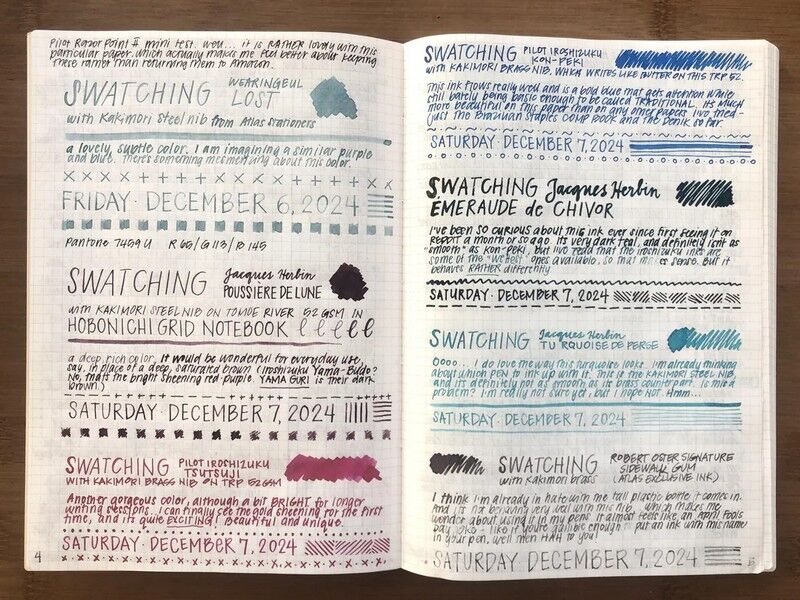 Pilot Razor Point II mini test. Well... it is RATHER lovely with this
particular paper. Which actually makes me feel better about keeping
these rather than returning them to Amazon.
SWATCHING WEARINGEUL
LOST
with Kakimori Steel nib from Atlas Stationers
a lovely, subtle color. I am imagining a similar purple
and blue. There's something mesmerizing about this color.
FRIDAY · DECEMBER 6, 2024
Pantone 7459U R65/G113/B145
SWATCHING Jacques Herbin
POUSSIÈRE DE LUNE
with KAKIMORI STEEL NIB ON TOMOE RIVER 52 GSM IN
HOBONICHI GRID NOTEBOOK
a deep, rich color. It would be wonderful for everyday use,
say, in place of a deep, saturated brown (Iroshizuku Yama-Budo?
No, that's the bright sheening red-purple. YAMA GURI is their dark
brown.)
SATURDAY · DECEMBER 7, 2024
SWATCHING PILOT IROSHIZUKU
TSUTSUJI
WITH KAKIMORI BRASS NIB ON TRP 52GSM
Another gorgeous color, although a bit BRIGHT for longer
writing sessions. I can finally see the gold sheening for the first
time, and it's quite EXCITING! Beautiful and unique.
SATURDAY · DECEMBER 7, 2024
4
SWATCHING PILOT IROSHIZUKU
KON-PEKI
with KAKIMORI BRASS NIB, WHICH WRITES LIKE BUTTER ON THIS TRP 52.
This ink flows really well and is a bold blue that gets attention while
still barely being basic enough to be called TRADITIONAL. It's MUCH
more beautiful on this paper than on any other papers I've tried -
(just the Brazilian Staples COMP BOOK and the Denik so far.
SATURDAY · DECEMBER 7, 2024
SWATCHING Jacques Herbin
ÉMERAUDE de CHIVOR
I've been SO CURIOUS about this ink ever since first seeing it on
REDDIT a month or so ago. Its very dark teal, and definitely isn't as
"smooth" as Kon-peki, but I've read that the iroshizuku inks are
some of the "wettest" ones available. so that makes sense. But it
behaves RATHER differently
SATURDAY · DECEMBER 7, 2024
SWATCHING Jacques Herbin
TURQUOISE DE PERSE
Oooo... I do love the way this turquoise looks. I'm already thinking
about which PEN to ink up with it. This is the KAKIMORI STEEL NIB,
and its definitely not as smooth as its brass counterpart. Is this a
problem? I'm really not sure yet, but I hope NOT. Hmm...
SATURDAY · DECEMBER 7, 2024
SWATCHING ROBERT OSTER SIGNATURE
with Kakimori brass SIDEWALK GUM
(ATLAS EXCLUSIVE INK)
I think I'm already in hate with the tall plastic bottle it comes in.
And it's not behaving very well with this nib. which makes me
wonder about using it in my pens. It almost feels like an April Fools
day joke - like if you're gullible enough to put an ink with this name
in your pen, well then HAH to you!
SATURDAY · DECEMBER 7, 2024